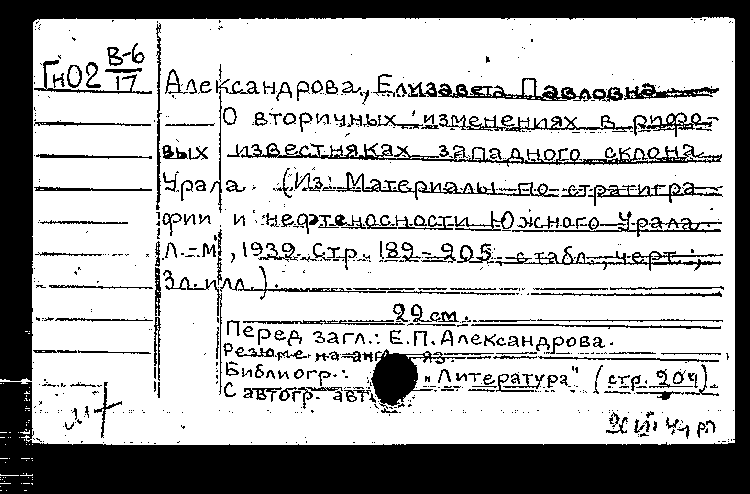 Гн02 В-6/17
Александрова, Елизавета Павловна
О вторичных изменениях в рифо-
вых известняках западного склона
Урала. (Из: Материалы по стратигра-
фии и нефтеносности Южного Урала.
Л.-М, 1939. Стр. 189-205, с табл., черт.;
3л. илл.).
29 см.
Перед загл.: Е.П.Александрова.
Резюме на англ. яз.
Библиогр.: "Литература" (стр. 204).
С автогр. авт